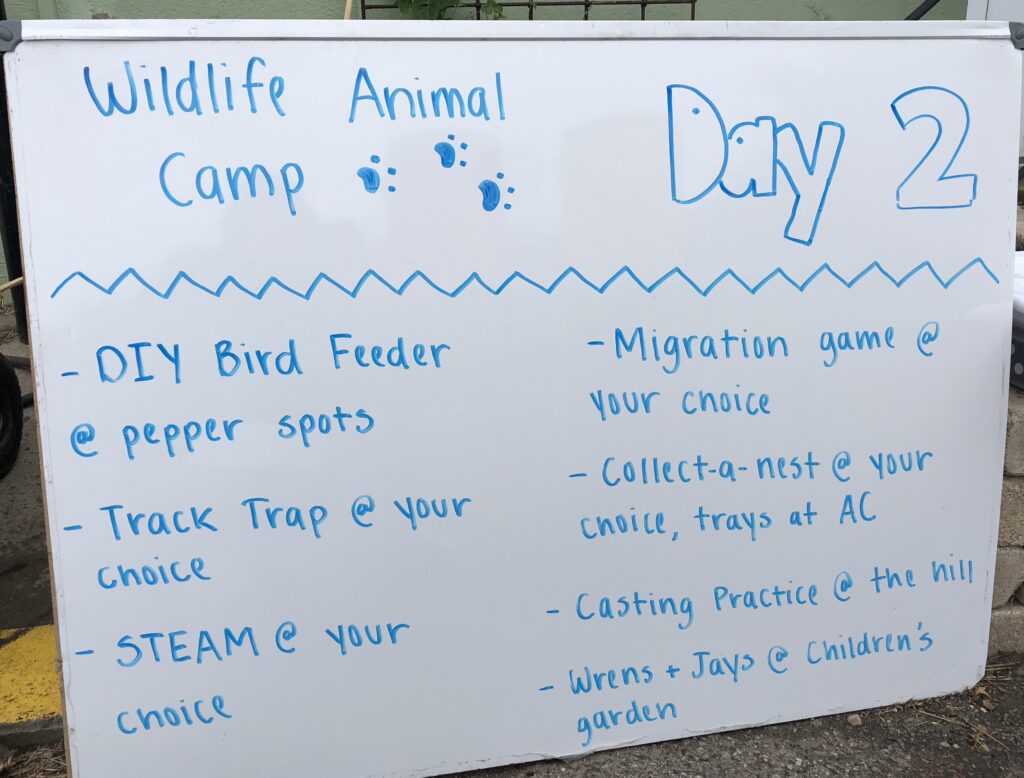 Wildlife Animal
Camp
Day 2
- DIY Bird Feeder
@ pepper spots
- Track Trap @ your
choice
- STEAM @ your
choice
- Migration game @
your choice
- Collect-a-nest @ your
choice, trays at AC
- Casting Practice @ the hill
- Wrens + Jays @ Children's
garden